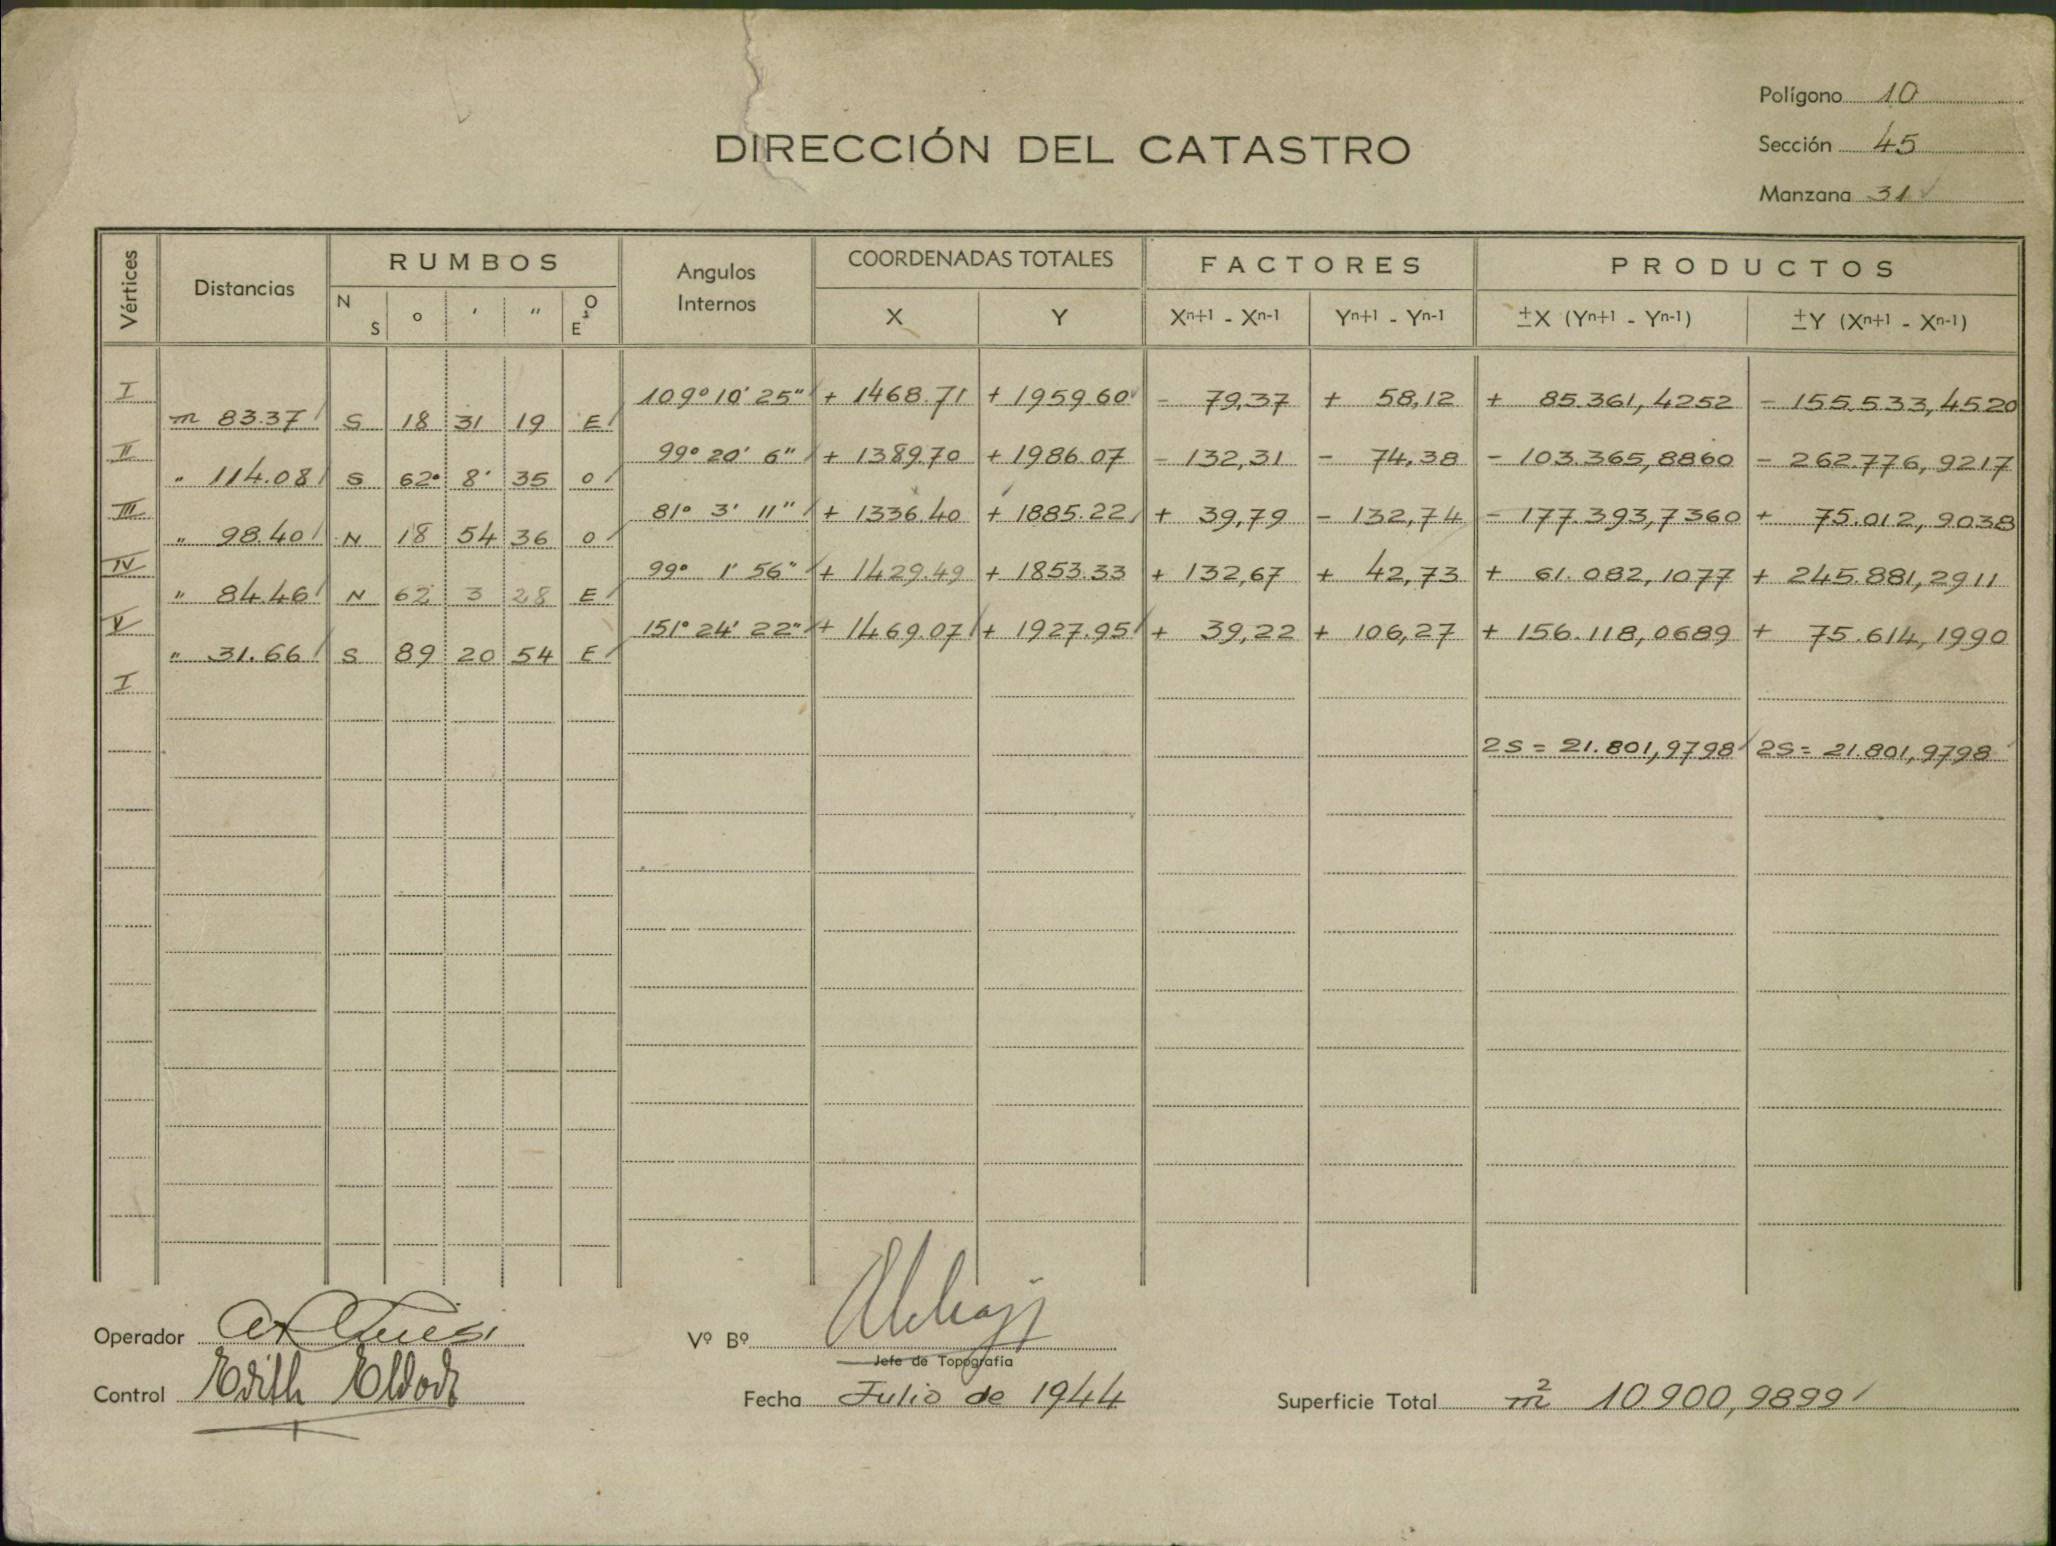 Polígono 10
DIRECCIÓN DEL CATASTRO
Sección 45
Manzana 31
Vértices Distancias RUMBOS N S ° ' " O E Angulos Internos COORDENADAS TOTALES X Y FACTORES Xn+1 - Xn-1 Yn+1 - Yn-1 PRODUCTOS ±X (Yn+1 - Yn-1) ±Y (Xn+1 - Xn-1)
I 109° 10' 25" + 1468.71 + 1959.60 - 79,37 + 58,12 + 85.361,4252 - 155.533,4520
m 83.37 S 18 31 19 E
II 99° 20' 6" + 1389.70 + 1986.07 - 132,31 - 74,38 - 103.365,8860 - 262.776,9217
" 114.08 S 62° 8' 35 O
III 81° 3' 11" + 1336.40 + 1885.22 + 39,79 - 132,74 - 177.393,7360 + 75.012,9038
" 98.40 N 18 54 36 O
IV 99° 1' 56" + 1429.49 + 1853.33 + 132,67 + 42,73 + 61.082,1077 + 245.881,2911
" 84.46 N 62 3 28 E
V 151° 24' 22" + 1469.07 + 1927.95 + 39,22 + 106,27 + 156.118,0689 + 75.614,1990
" 31.66 S 89 20 54 E
I
2S = 21.801,9798 2S = 21.801,9798
Operador
Vº Bº
Jefe de Topografía
Control Edith
Fecha Julio de 1944
Superficie Total m² 10.900,9899